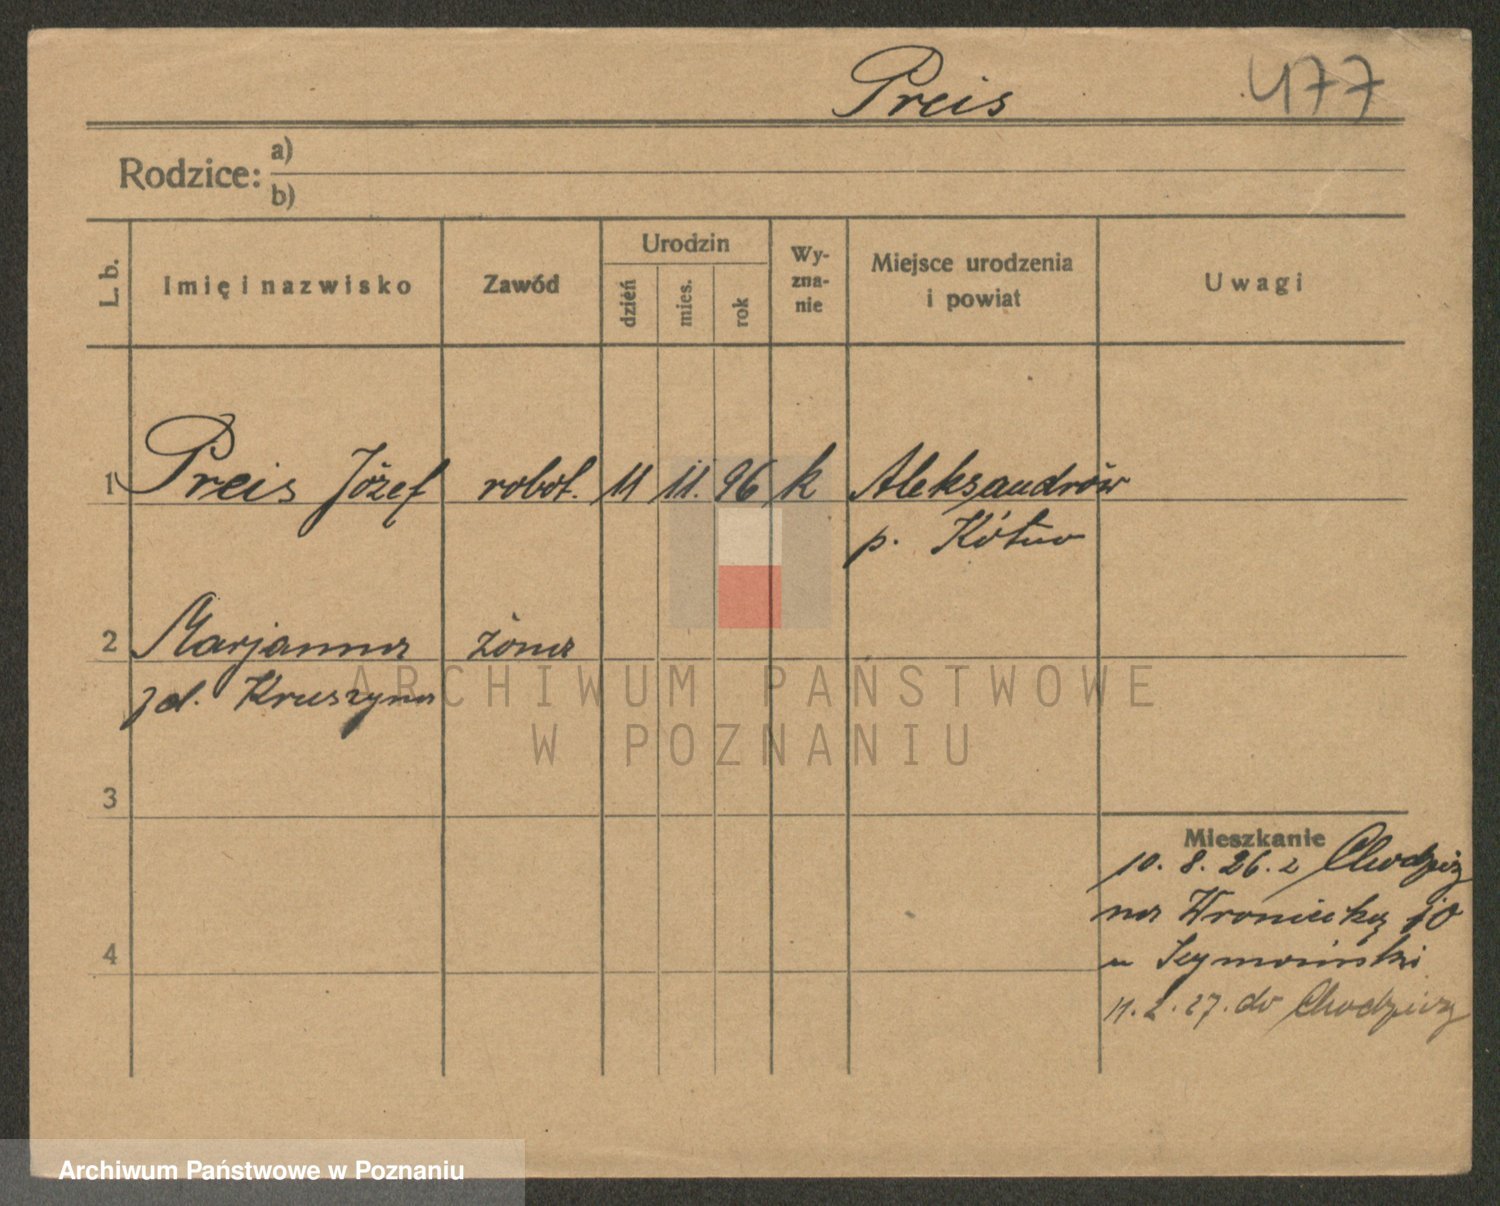 Preis 477
Rodzice: a)
b)
L. b. Imię i nazwisko Zawód Urodzin dzień mies. rok Wy-zna-nie Miejsce urodzenia i powiat Uwagi
1 Preis Józef robot. 11 11. 96 k Aleksandrów
p. Kótno
2 Marjanna żona
zd. Kruszyna
ARCHIWUM PAŃSTWOWE
W POZNANIU
3
Mieszkanie
10. 8. 26. z Chodzieży
na Wroniecką 10
u Szymański
4
11. 2. 27. do Chodzieży
Archiwum Państwowe w Poznaniu